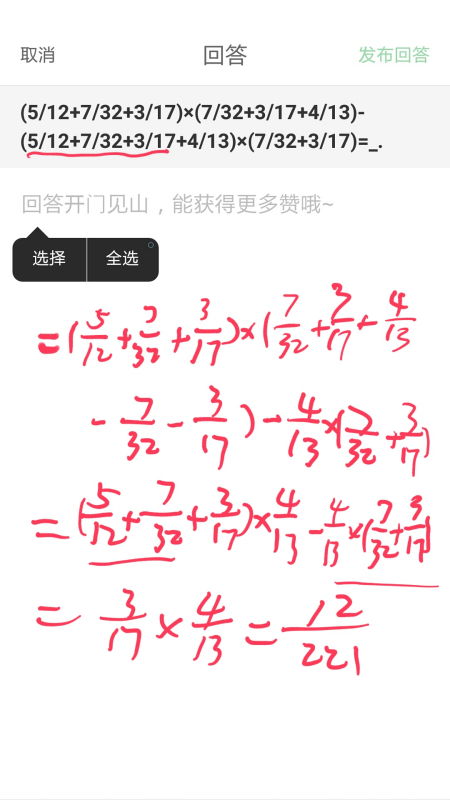 取消 回答 发布回答
(5/12+7/32+3/17)×(7/32+3/17+4/13)-
(5/12+7/32+3/17+4/13)×(7/32+3/17)=_.
回答开门见山，能获得更多赞哦~
选择 全选
=(5/12+7/32+3/17)×(7/32+3/17+4/13
-7/32-3/17)-4/13×(7/32+3/17)
=(5/12+7/32+3/17)×4/13-4/13×(7/32+3/17)
=3/17×4/13=12/221